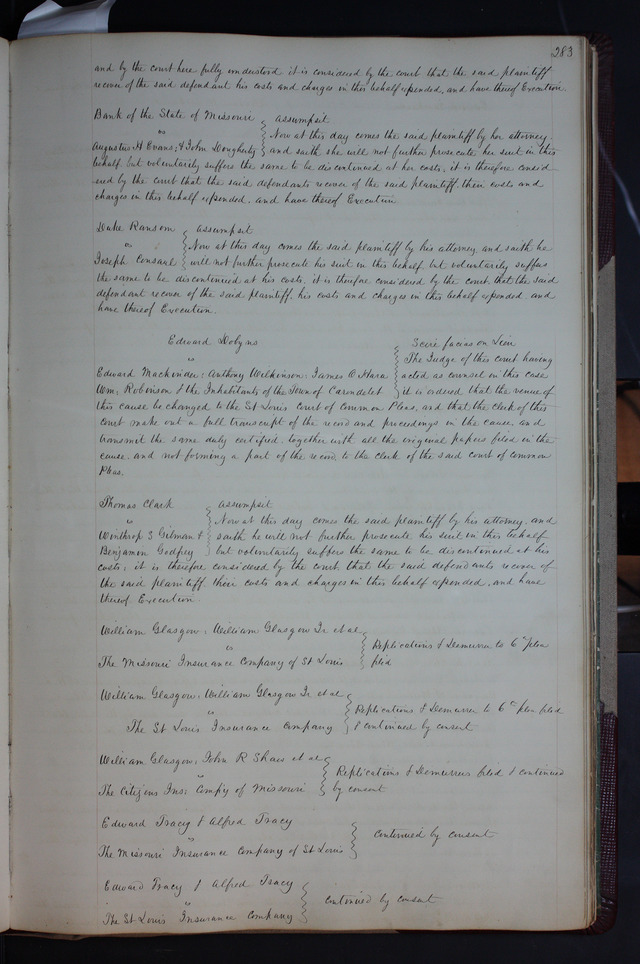 283
and by the court here fully understood it is considered by the court that the said plaintiff
recover of the said defendant his costs and charges in this behalf expended, and have thereof Execution
Bank of the State of Missouri assumpsit
vs Now at this day comes the said plaintiff by her attorney
Augustus H Evans, & John Dougherty and saith she will not further prosecute her suit in this
behalf but voluntarily suffers the same to be discontinued at her costs, it is therefore consid
ered by the court that the said defendants recover of the said plaintiff, their costs and
charges in this behalf expended, and have thereof Execution
Duke Ransom assumpsit
vs Now at this day comes the said plaintiff by his attorney and saith he
Joseph Consaul will not further prosecute his suit in this behalf, but voluntarily suffers
the same to be discontinued at his costs, it is therefore considered by the court that the said
defendant recover of the said plaintiff, his costs and charges in this behalf expended and
have thereof Execution.
Edward Dobyns Scire facias on Lien
vs The Judge of this court having
Edward Mackinder: Anthony Wilkinson: James O Hara acted as counsel in this case
Wm. Robinson & the Inhabitants of the Town of Carondelet it is ordered that the venue of
this cause be changed to the St Louis Court of Common Pleas, and that the clerk of this
court make out a full transcript of the record and proceedings in the cause, and
transmit the same duly certified, together with all the original papers filed in the
cause, and not forming a part of the record to the clerk of the said court of common
Pleas.
Thomas Clark assumpsit
vs Now at this day comes the said plaintiff by his attorney, and
Winthrop S Gilman & saith he will not further prosecute his suit in this behalf
Benjamin Godfrey but voluntarily suffers the same to be discontinued at his
costs; it is therefore considered by the court, that the said defendants recover of
the said plaintiff their costs and charges in this behalf expended, and have
thereof Execution.
William Glasgow, William Glasgow Jr et al
vs Replications & Demurrer to 6th plea
The Missouri Insurance Company of St Louis filed
William Glasgow, William Glasgow Jr et al
vs Replications & Demurrer to 6th plea filed
The St Louis Insurance Company & continued by consent
William Glasgow, John R Shaw et al
vs Replications & Demurrers filed & continued
The Citizens Ins: Compy of Missouri by consent
Edward Tracy & Alfred Tracy
vs continued by consent
The Missouri Insurance Company of St Louis
Edward Tracy & Alfred Tracy
vs continued by consent
The St. Louis Insurance Company